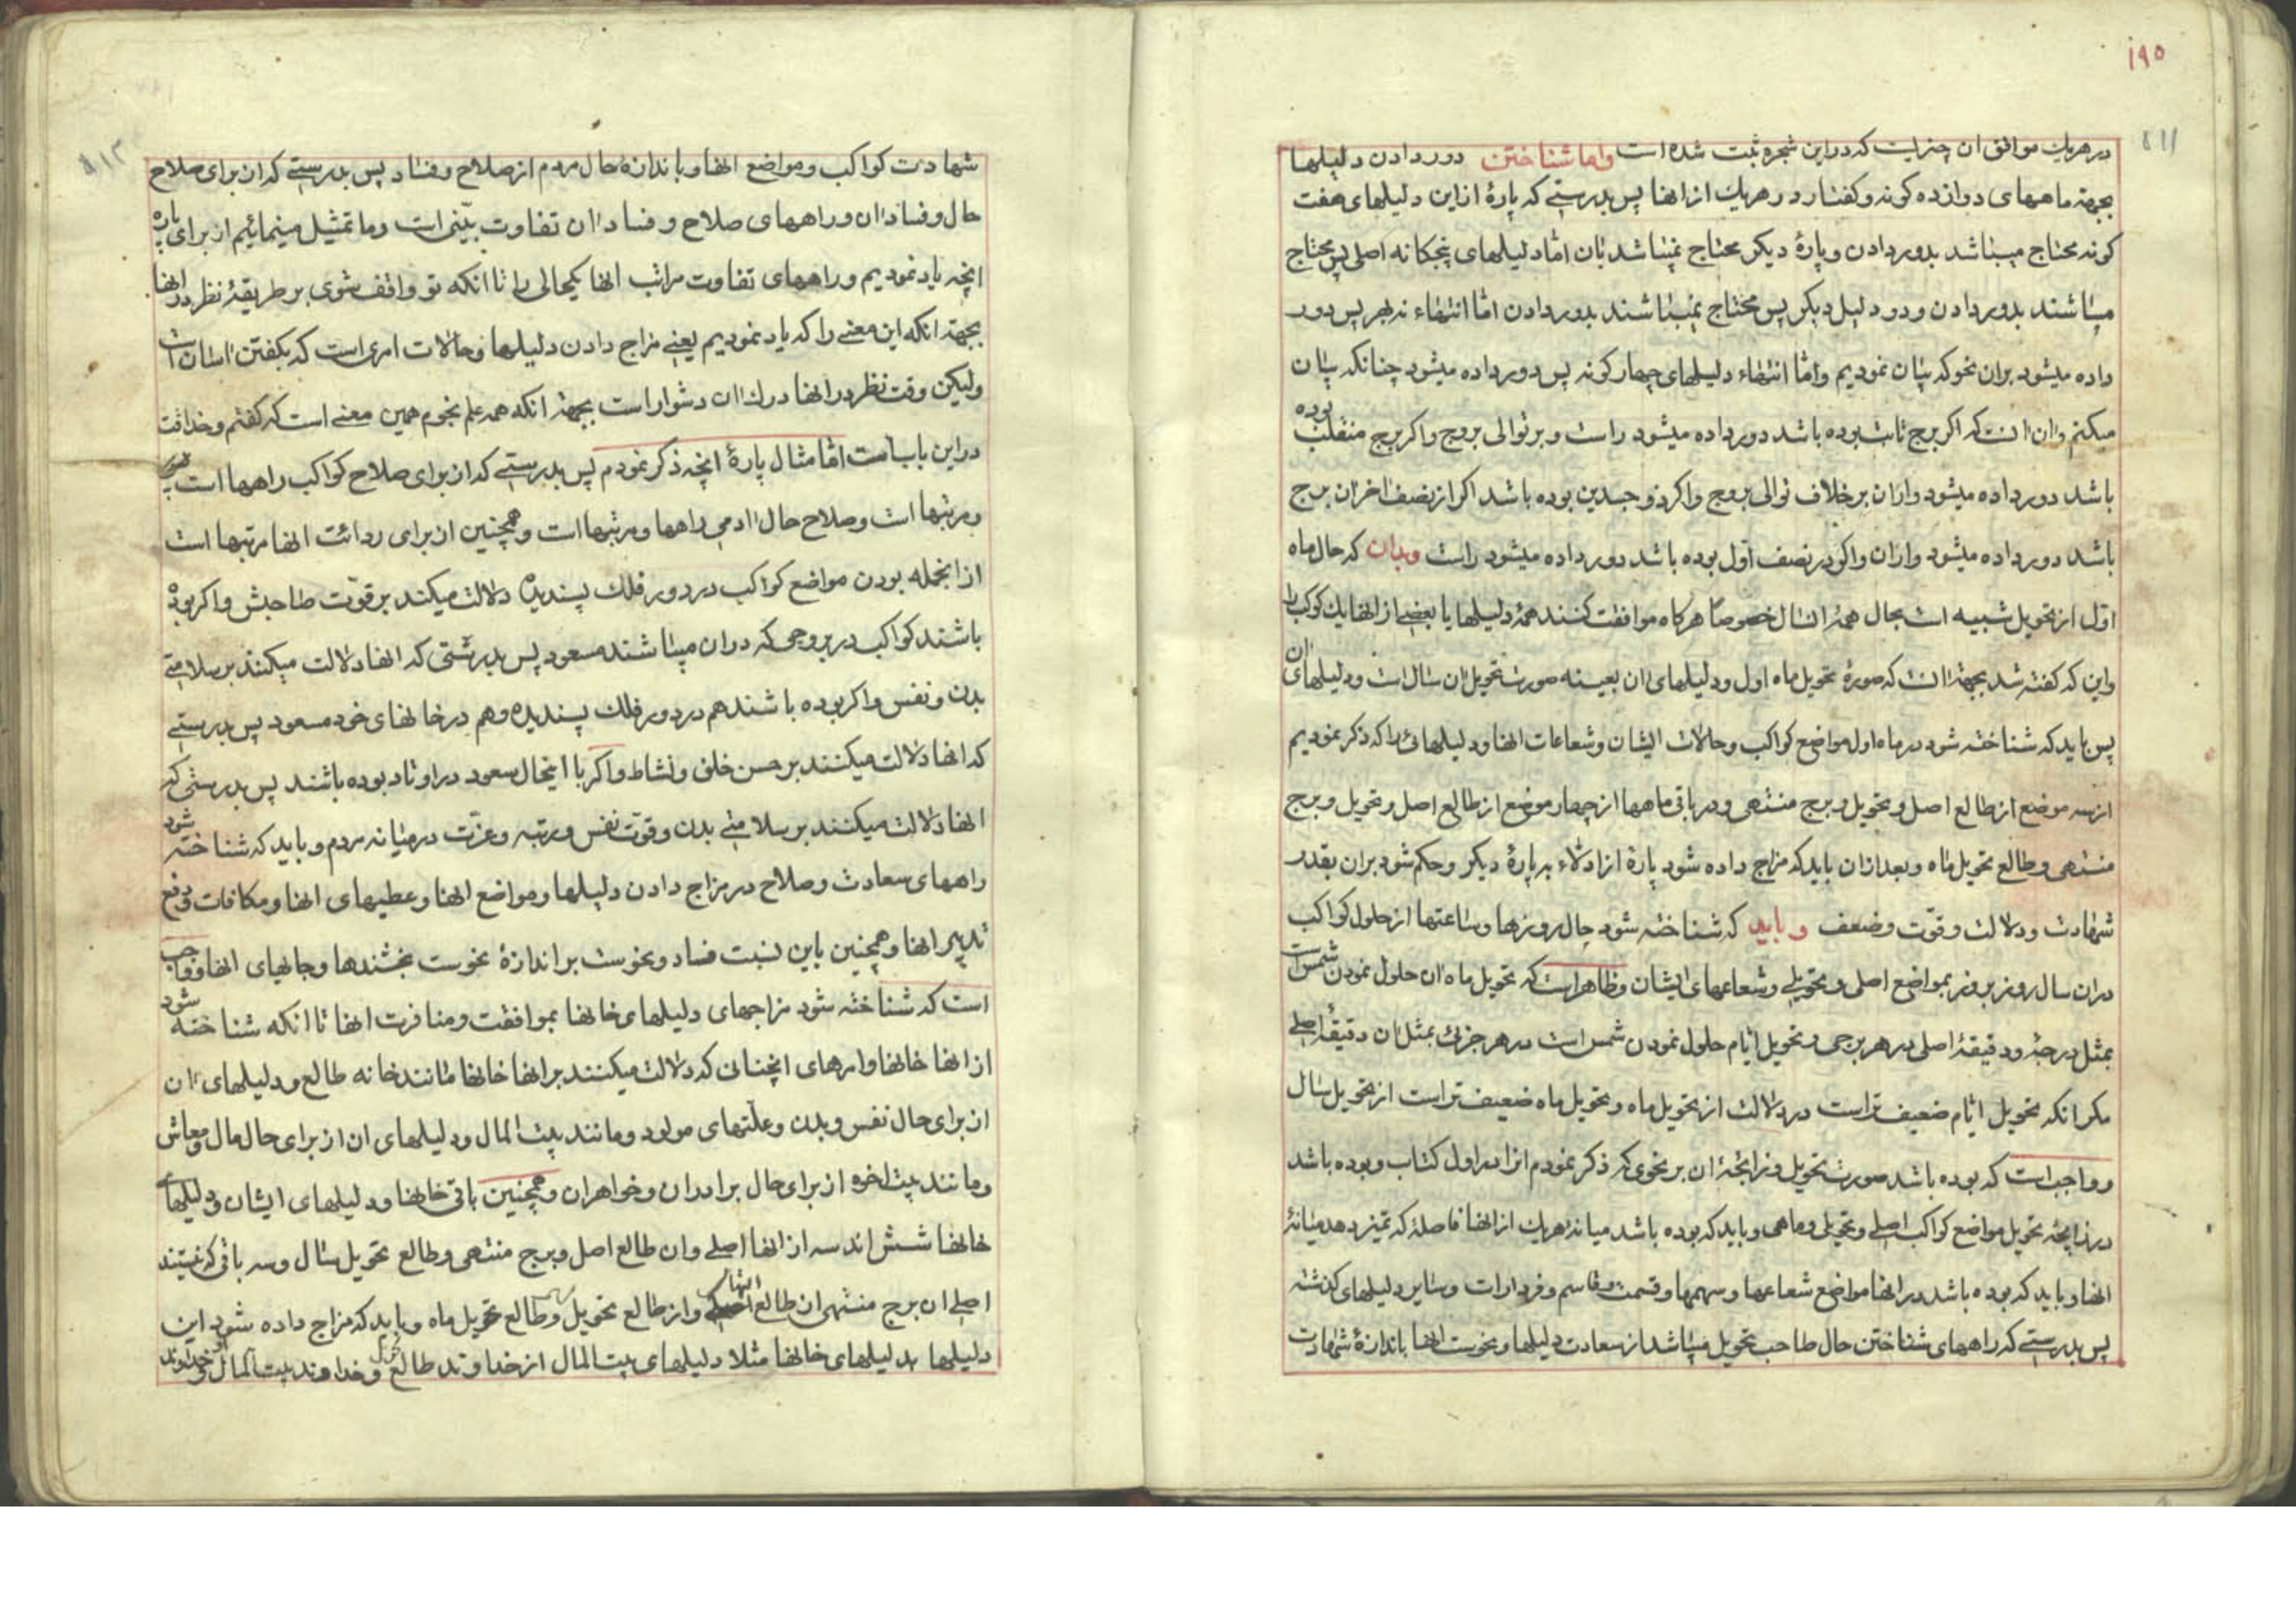 ۱۹۵
در هر یك موافق ان چیزیست که در این شجره ثبت شده است واما شناختن دور دادن دلیلها
بجهة ماههای دوازده کونه و کفتار در هر یك از انها پس بدرستی که پارهٔ از این دلیلهای هفت
کونه محتاج میباشد بدور دادن و پارهٔ دیکر محتاج نمیباشد بان امّا دلیلهای پنجکانه اصلی پس محتاج
میباشند بدور دادن و دو دلیل دیکر پس محتاج نمیباشند بدور دادن امّا انتهاء نه بهر پس دور
داده میشود بران نحو که بیان نمودیم وامّا انتهاء دلیلهای چهار کونه پس دور داده میشود چنانکه بیان
میکنم و ان انست که اکر برج ثابت بوده باشد دور داده میشود راست و بر توالی بروج واکر برج منقلب بوده
باشد دور داده میشود واران بر خلاف توالی بروج واکر ذوجسدین بوده باشد اکر از نصف اخر ان برج
باشد دور داده میشود واران واکر در نصف اوّل بوده باشد دور داده میشود راست وبدان که حال ماه
اوّل از تحویل شبیه است بحال همهٔ انسال خصوصًا هرکاه موافقت کنند همهٔ دلیلها یا بعضی از انها یك کوکب را
واین که کفته شد بجهة انست که صورة تحویل ماه اول ودلیلهای ان بعینه صورت تحویل ان سال است ودلیلهای ان
پس باید که شناخته شود در ماه اول مواضع کواکب وحالات ایشان وشعاعات انها ودلیلهائی را که ذکر نمودیم
از سه موضع از طالع اصل وتحویل وبرج منتهی ودر باقی ماهها از چهار موضع از طالع اصل وتحویل وبرج
منتهی وطالع تحویل ماه وبعد ازان باید که مزاج داده شود پارهٔ از ادلّاء به پارهٔ دیکر وحکم شود بران بقدر
شهادت ودلالت وقوّت وضعف وباید که شناخته شود حال روزها وساعتها از حلول کواکب
دران سال روز بروز بمواضع اصلی وتحویلی وشعاعهای ایشان وظاهر است که تحویل ماه ان حلول نمودن شمس است
بمثل درجه ودقیقهٔ اصلی در هر برجی وتحویل ایّام حلول نمودن شمس است در هر جزئی بمثل ان دقیقهٔ اصلی
مکر انکه تحویل ایّام ضعیف تر است در دلالت از تحویل ماه وتحویل ماه ضعیف تر است از تحویل سال
وواجب است که بوده باشد صورت تحویل وزایجهٔ ان بر نحوی که ذکر نمودم انرا در اول کتاب وبوده باشد
در زایجهٔ تحویل مواضع کواکب اصلی وتحویلی وماهی وباید که بوده باشد میانهٔ هر یك از انها فاصلهٔ که تمیز دهد میانهٔ
انها وباید که بوده باشد در انها مواضع شعاعها وسهمها وقسمت وقاسم وفردارات وسایر دلیلهای کذشته
پس بدرستی که راههای شناختن حال صاحب تحویل میباشد از سعادت دلیلها ونحوست انها باندازهٔ شهادت
شهادت کواکب ومواضع انها وباندازهٔ حال مردم از صلاح وفساد پس بدرستی که از برای صلاح
حال وفساد ان وراههای صلاح وفساد ان تفاوت بیّنی است وما تمثیل مینمائیم از برای پاره
انچه یاد نمودیم وراههای تفاوت مراتب انها یکحالی را تا انکه تو واقف شوی بر طریقهٔ نظر در انها
بجهة انکه این معنی را که یاد نمودیم یعنی مزاج دادن دلیلها وحالات امری است که بکفتن اسان است
ولیکن وقت نظر در انها درك ان دشوار است بجهة انکه همه علم نجوم همین معنی است که کفتم وحذاقت
در این باب است امّا مثال پارهٔ انچه ذکر نمودم پس بدرستی که از برای صلاح کواکب راهها است
ومرتبها است وصلاح حال ادمی راهها ومرتبها است وهمچنین از برای ردائت انها مرتبها است
از انجمله بودن مواضع کواکب در دور فلك پسندیده دلالت میکند بر قوّت صاحبش واکر بوده
باشند کواکب در بروجی که دران میباشند مسعود پس بدرستی که انها دلالت میکنند بر سلامتی
بدن ونفس واکر بوده باشند هم در دور فلك پسندیده وهم در خانهای خود مسعود پس بدرستی
که انها دلالت میکنند بر حسن خلق ونشاط واکر با اینحال سعود در اوتاد بوده باشند پس بدرستی که
انها دلالت میکنند بر سلامتی بدن وقوّت نفس ورتبه وعزّت در میانه مردم وباید که شناخته شود
راههای سعادت وصلاح در مزاج دادن دلیلها ومواضع انها وعطیهای انها ومکافات ودفع
تدبیر انها وهمچنین باین نسبت فساد ونحوست بر اندازهٔ نحوست بخشندها وجایهای انها وواجب
است که شناخته شود مزاجهای دلیلهای خانها بموافقت ومنافرت انها تا انکه شناخته شود
از انها خانها وامرهای انچنانی که دلالت میکنند بر انها خانها مانند خانه طالع ودلیلهای ان
از برای حال نفس وبدن وعلّتهای مولود ومانند بیت المال ودلیلهای ان از برای حال مال ومعاش
ومانند بیت اخوه از برای حال برادران وخواهران وهمچنین باقی خانها ودلیلهای ایشان ودلیلهای
خانها شش اند سه از انها اصلی وان طالع اصل وبرج منتهی وطالع تحویل سال وسه باقی که نیستند
اصلی ان برج منتهی از طالع انتهائی واز طالع تحویل وطالع تحویل ماه وباید که مزاج داده شود این
دلیلها بدلیلهای خانها مثلا دلیلهای بیت المال از خداوند طالع وخداوند بیت المال وخداوند